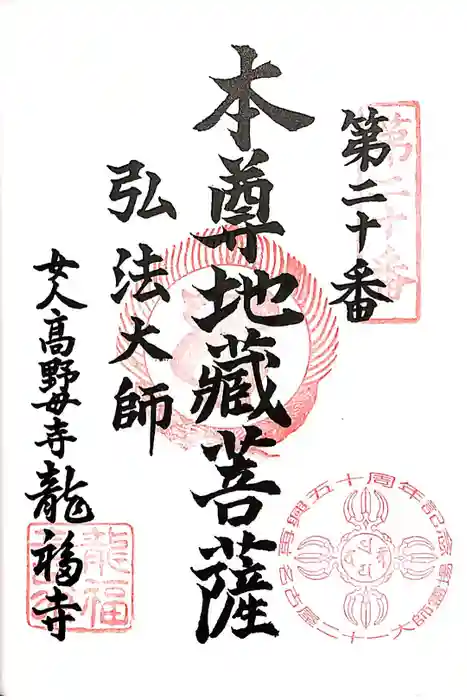 第二十番
第二十番
本尊地蔵菩薩
弘法大師
女人高野母寺龍福寺
龍福
再興五十周年記念
名古屋二十一大師霊場